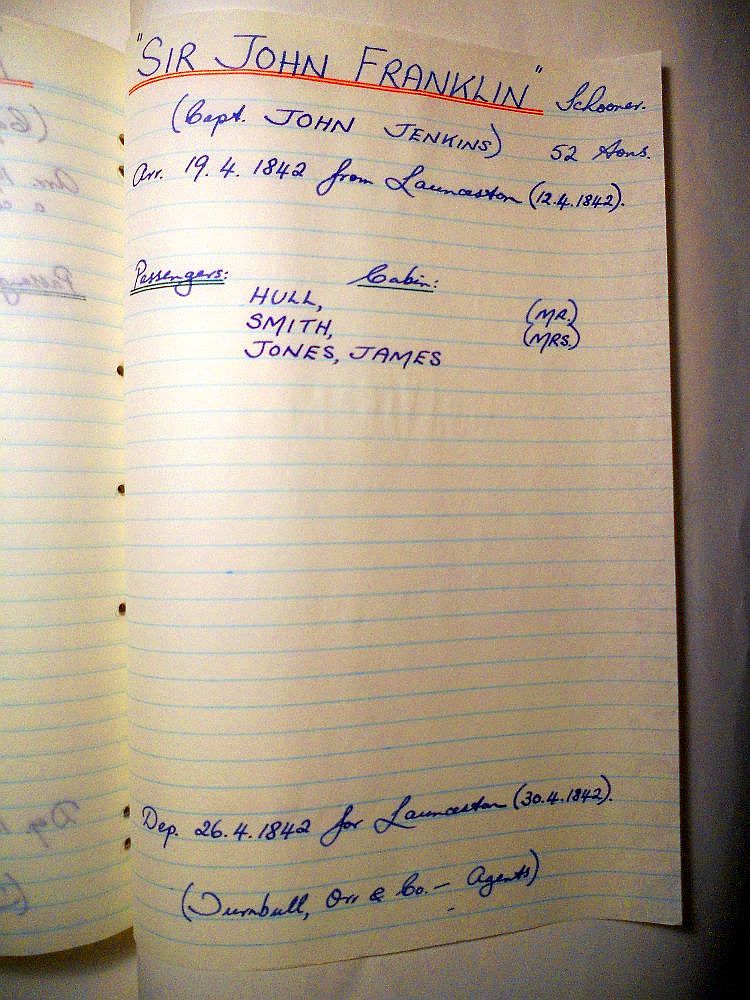 "SIR JOHN FRANKLIN" Schooner.
(Capt. JOHN JENKINS) 52 tons.
Arr. 19.4.1842 from Launceston (12.4.1842).
Passengers: Cabin:
HULL, (MR.)
SMITH, (MRS.)
JONES, JAMES
Dep. 26.4.1842 for Launceston (30.4.1842).
(Turnbull, Orr & Co. — Agents)